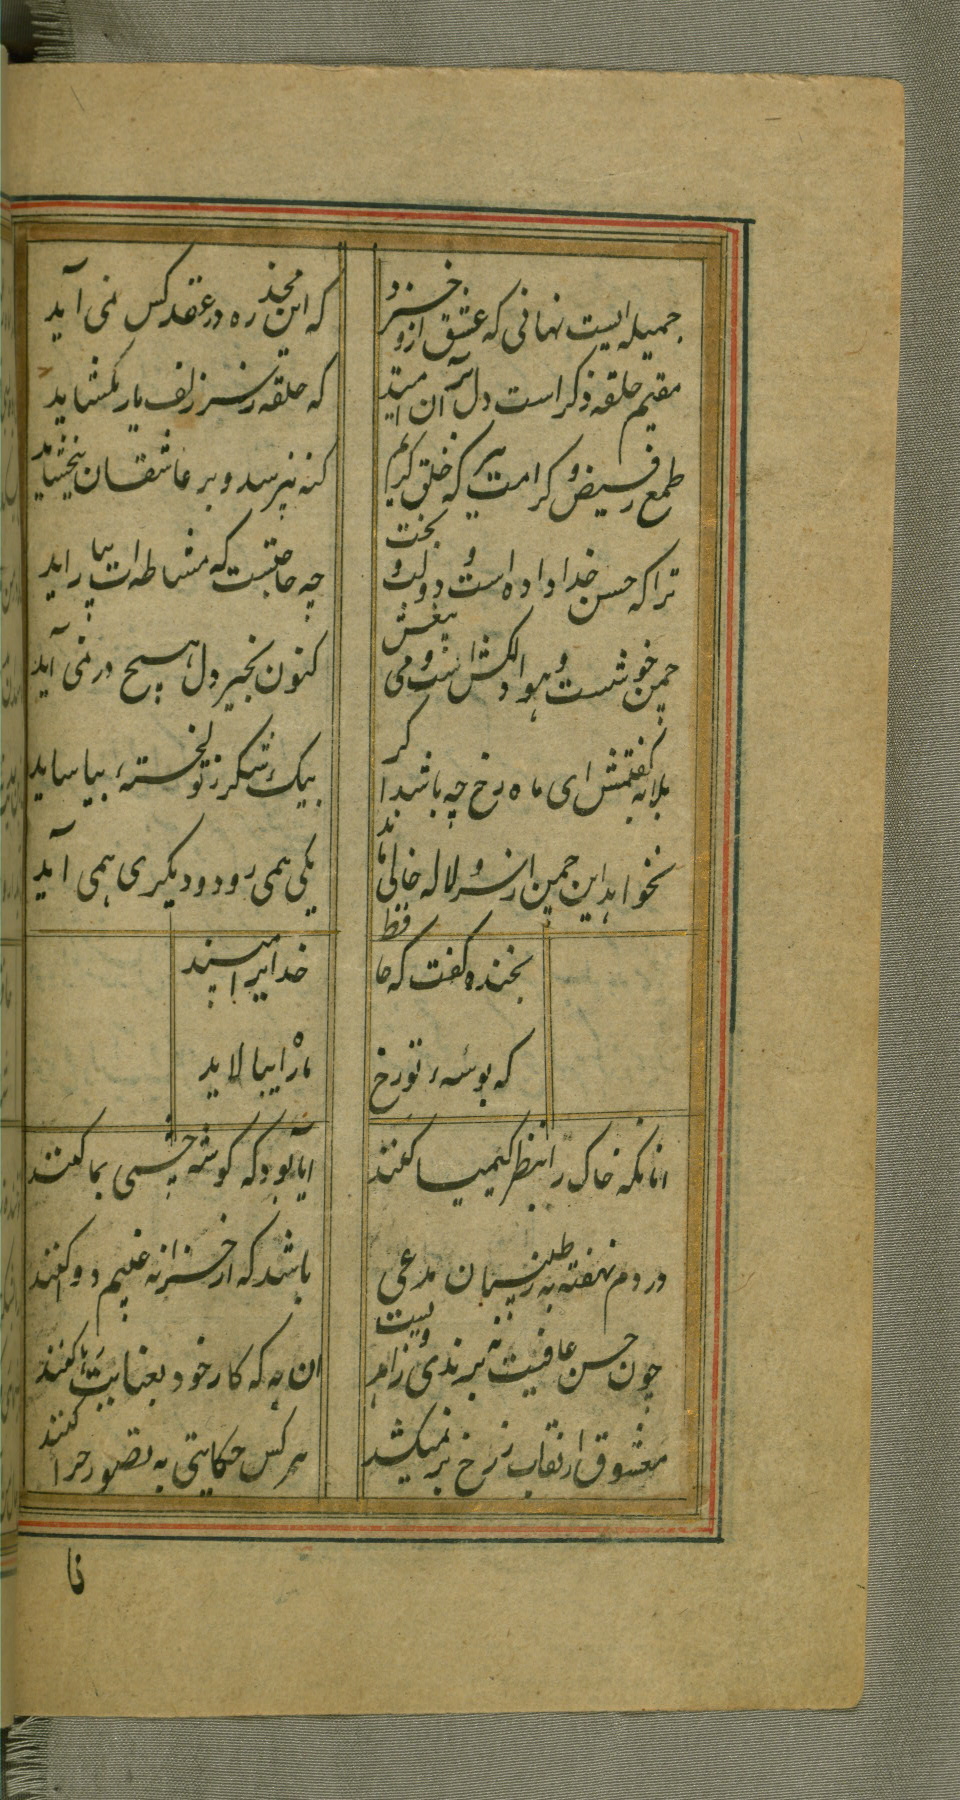 جمیله ایست نهانی که عشق ازو خیزد که این مخذره در عقد کس نمی آید
مقیم حلقه ذکر است دل بر آن امید که حلقه ز سر زلف یار بگشاید
طمع ز فیض و کرامت مبر که خلق کریم گنه نپرسد و بر عاشقان ببخشاید
ترا که حسن خدا داده است و دولت و بخت چه حاجتست که مشاطه ات بیاراید
چمن خوشست و هوا دلکش است و می بیغش کنون بجز دل هیچ در نمی آید
بلابه گفتمش ای ماه رخ چه باشد اگر بیک شکر ز تو دلخسته بیاساید
نخواهد این چمن از سرو لاله خالی ماند یکی همی رود و دیگری همی آید
بخنده گفت که حافظ خدایرا مپسند
که بوسهٔ تو رخ ماه را بیالاید
انانکه خاک را بنظر کیمیا کنند آیا بود که گوشه چشمی بما کنند
دردم نهفته به ز طبیبان مدعی باشد که از خزانه غیبم دوا کنند
چون حسن عاقبت نه برندی و زاهدیست ان به که کار خود بعنایت رها کنند
معشوق از نقاب ز رخ بر نمیکشد هر کس حکایتی به تصور چرا کنند
نا